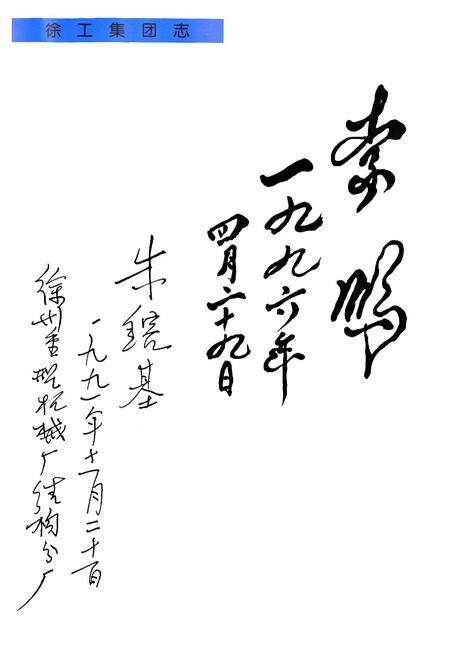 徐工集团志
李鹏
一九九六年
四月二十九日
朱镕基
一九九一年十一月二十日
徐州重型机械厂结构分厂